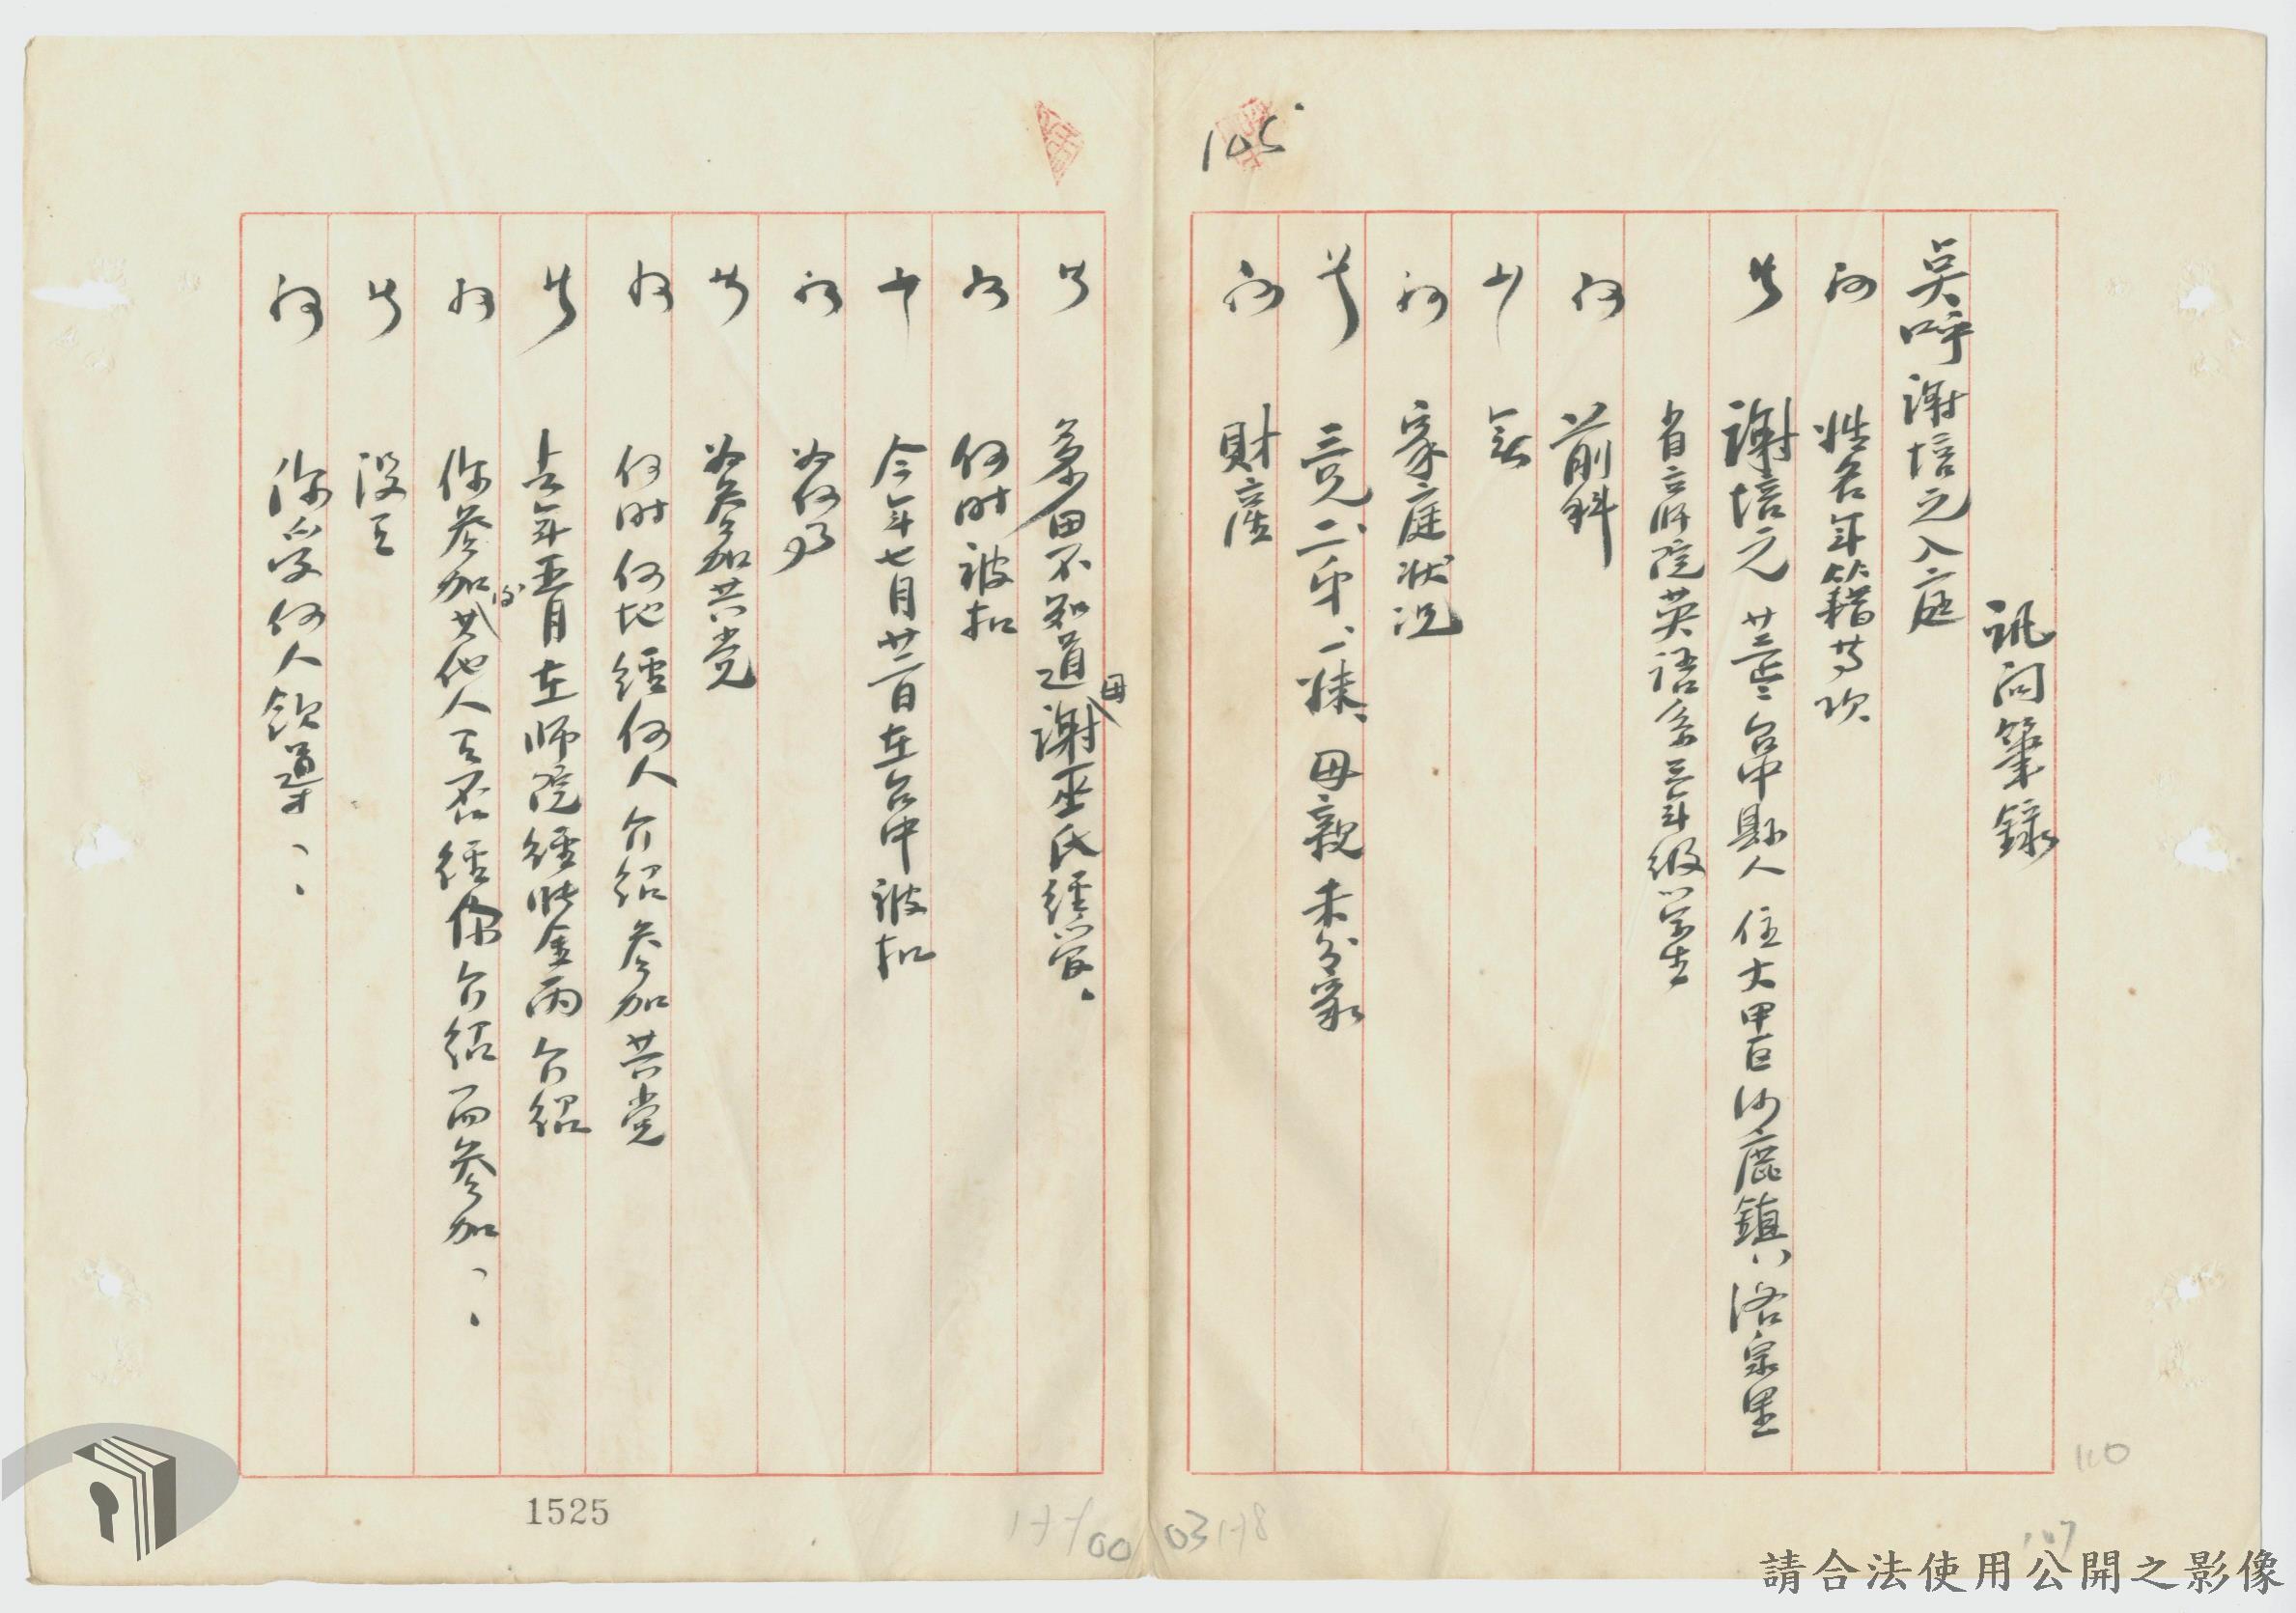 訊問筆錄
吳呼謝培元入庭
問 姓名年籍等項
答 謝培元 廿三歲 台中縣人 住大甲區沙鹿鎮洛泉里
省立師院英語系三年級學生
問 前科
答 無
問 家庭狀況
答 三兄二弟、一妹、母親未分家
問 財產
答 多田不知道母謝巫氏經管、
問 何時被扣
答 今年七月廿二日在台中被扣
問 為何事
答 為參加共党
問 何時何地經何人介紹參加共党
答 去年五月在師院經張金雨介紹
問 你參加後其他人有否經你介紹而參加、、
答 沒有
問 你受何人領導、、
105
1525
110
請合法使用公開之影像